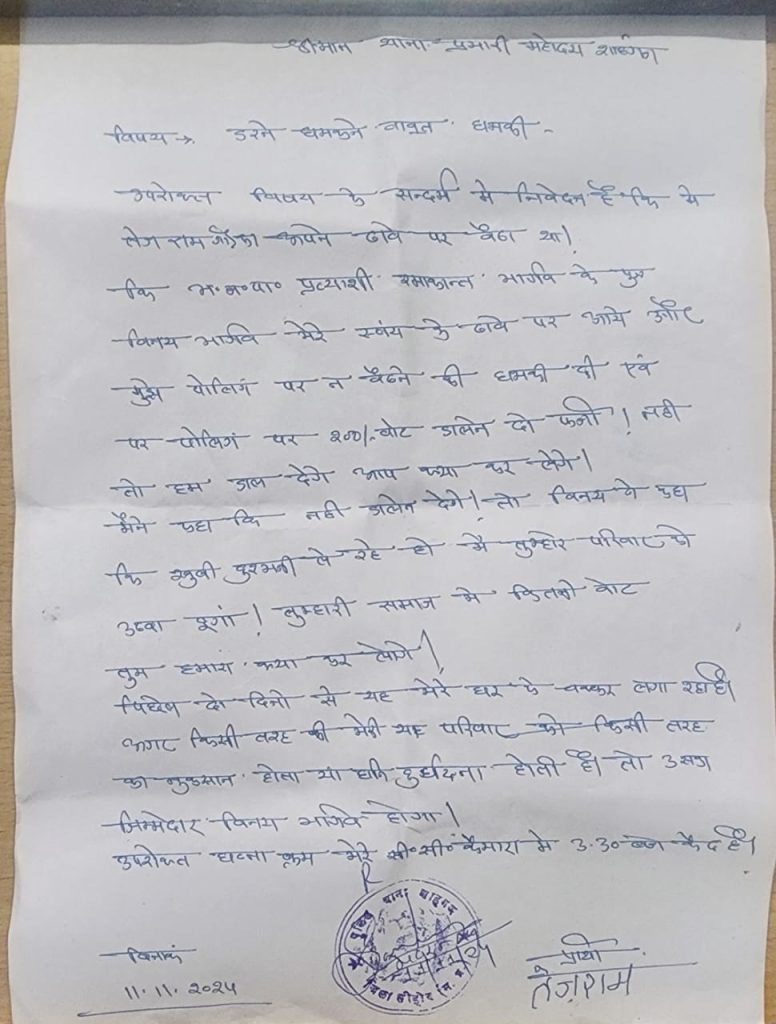 श्रीमान थाना प्रभारी महोदय शाहगंज
विषय → डरने धमकने बावूत धमकी -
उपरोक्त विषय के सन्दर्भ मे निवेदन है कि मे
तेज राम गौर अपने ढावे पर बैठा था।
कि भ॰ज॰पा॰ प्रत्याशी रमाकान्त भार्गव के पुत्र
विनय भार्गव मेरे स्वंय के ढावे पर आये और
मुझे पोलिगं पर न बैठने की धमकी दी एवं
पर पोलिगं पर २००/- वोट डालेन दो फर्जी ! नही
तो हम डाल देगे आप क्या कर लेगे।
मैने कहा कि नही डालेन देगे। तो विनय ने कहा
कि दुश्मनी ले रहे हो मै तुम्हारे परिवार को
उठवा दूगां ! तुम्हारी समाज मे कितने वोट
तुम हमारा क्या कर लोगे।
पिछले दो दिनो से यह मेरे घर के चक्कर लगा रहा है।
अगर किसी तरह की मेरी यह परिवार को किसी तरह
का नुकसान होता या दुर्घटना होती है। तो उसका
जिम्मेदार विनय भार्गव होगा।
उपरोक्त घटना क्रम मेरे सी॰सी॰ कैमारा मे 3.30 बजे कैद है।
पुलिस थाना शाहगंज
जिला सीहोर (म.प्र.)
दिनाकं
11.11.२०२४
प्रार्थी
तेजराम